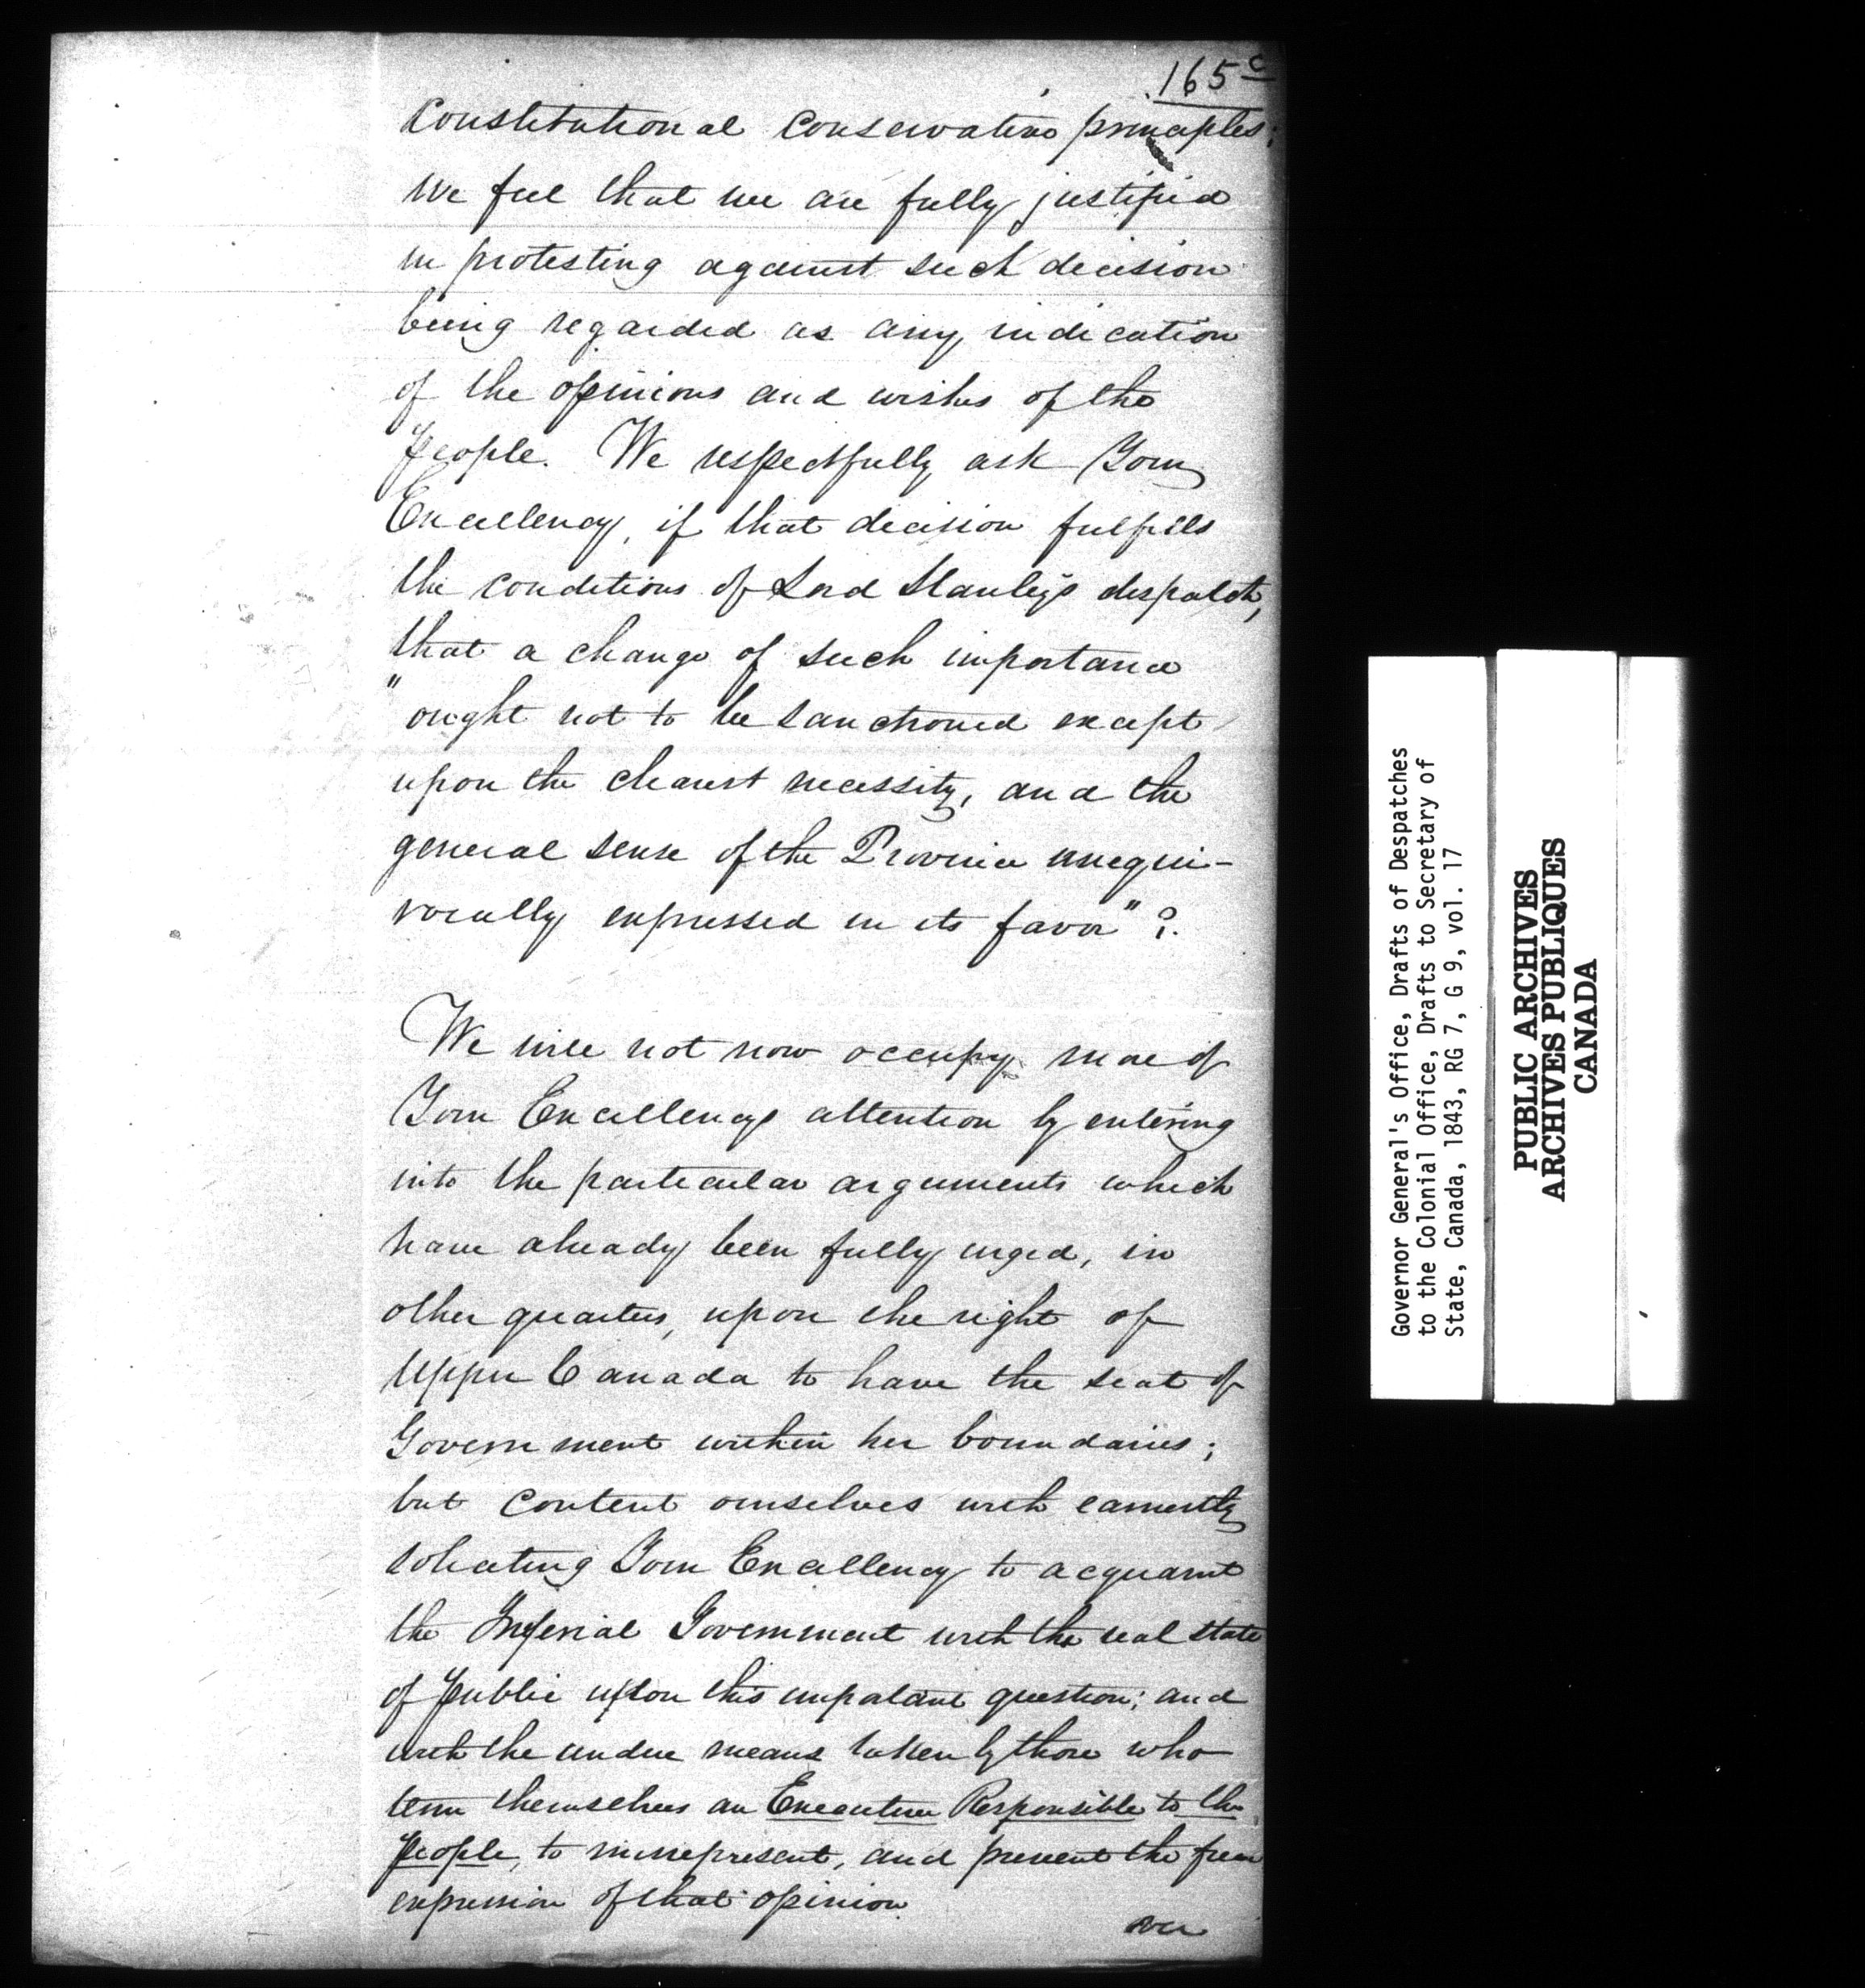 165c
Constitutional Conservative principles;
we feel that we are fully justified
in protesting against such decision
being regarded as any indication
of the opinions and wishes of the
people. We respectfully ask Your
Excellency, if that decision fulfills
the conditions of Lord Stanley's despatch,
that a change of such importance
"ought not to be sanctioned except
upon the clearest necessity, and the
general sense of the Province unequi-
vocally expressed in its favor"?
We will not now occupy more of
Your Excellency's attention by entering
into the particular arguments which
have already been fully urged, in
other quarters, upon the right of
Upper Canada to have the seat of
Government within her boundaries;
but content ourselves with earnestly
soliciting Your Excellency to acquaint
the Imperial Government with the real state
of public upon this important question; and
with the undue means taken by those who
term themselves an Executive Responsible to the
People, to misrepresent, and prevent the free
expression of that opinion.
over
Governor General's Office, Drafts of Despatches
to the Colonial Office, Drafts to Secretary of
State, Canada, 1843, RG 7, G 9, vol. 17
PUBLIC ARCHIVES
ARCHIVES PUBLIQUES
CANADA